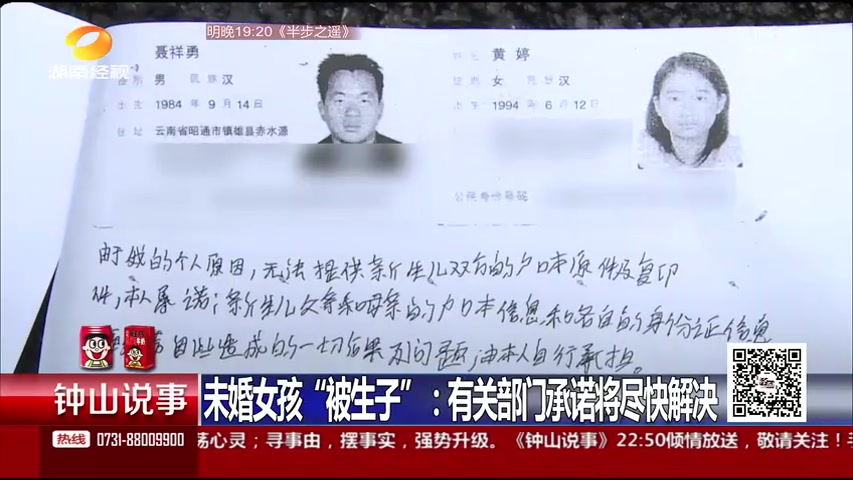 明晚19:20《半步之遥》
湖南经视
聂祥勇
男 民族 汉
出生 1984 年 9 月 14 日
住址 云南省昭通市镇雄县赤水源
黄婷
女 民族 汉
1994 年 6 月 12 日
公民身份号码
由于我的个人原因,无法提供新生儿双方的户口本原件及复印
件,本人承诺:新生儿父亲和母亲的户口本信息和各自的身份证信息
因此造成的一切后果及问题,由本人自行承担。
钟山说事
未婚女孩“被生子”:有关部门承诺将尽快解决
热线 0731-88009900
荡心灵;寻事由,摆事实,强势升级。《钟山说事》22:50倾情放送,敬请关注!